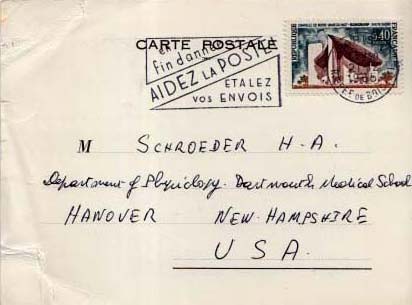 CARTE POSTALE
en
fin d'année
AIDEZ LA POSTE
ETALEZ
VOS ENVOIS
REPUBLIQUE
FRANÇAISE
0,40
M SCHROEDER H.A.
Department of Physiology. Dartmouth Medical School
HANOVER NEW-HAMPSHIRE
USA.